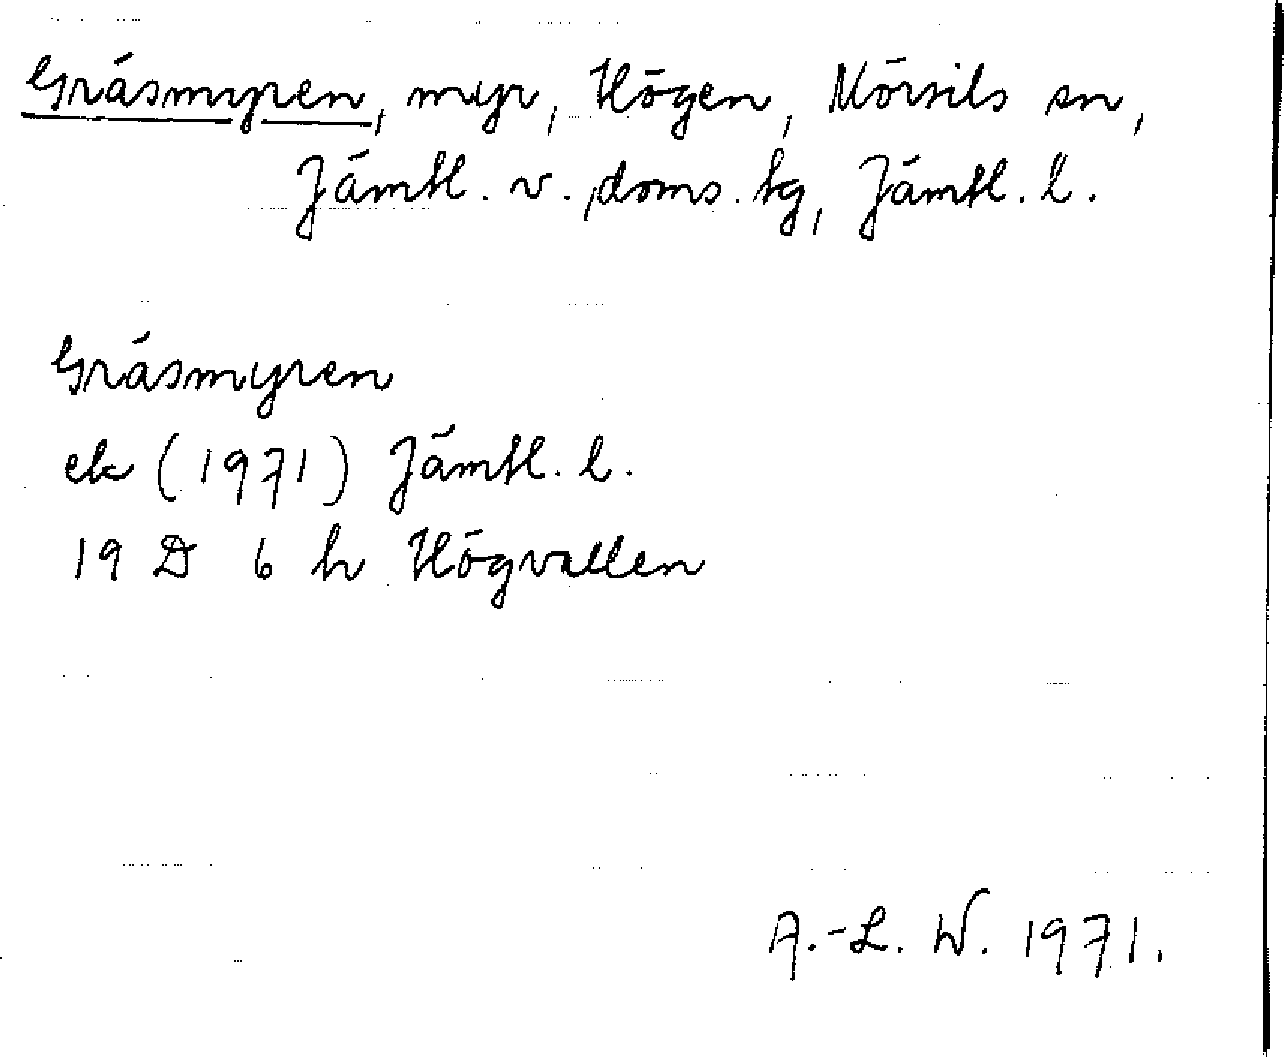 Gräsmyren, myr, Högen, Mörsils sn,
Jämtl. v. doms. tg, Jämtl. l.
Gräsmyren
ek (1971) Jämtl. l.
19 D 6 h Högvallen
A.-L. W. 1971.